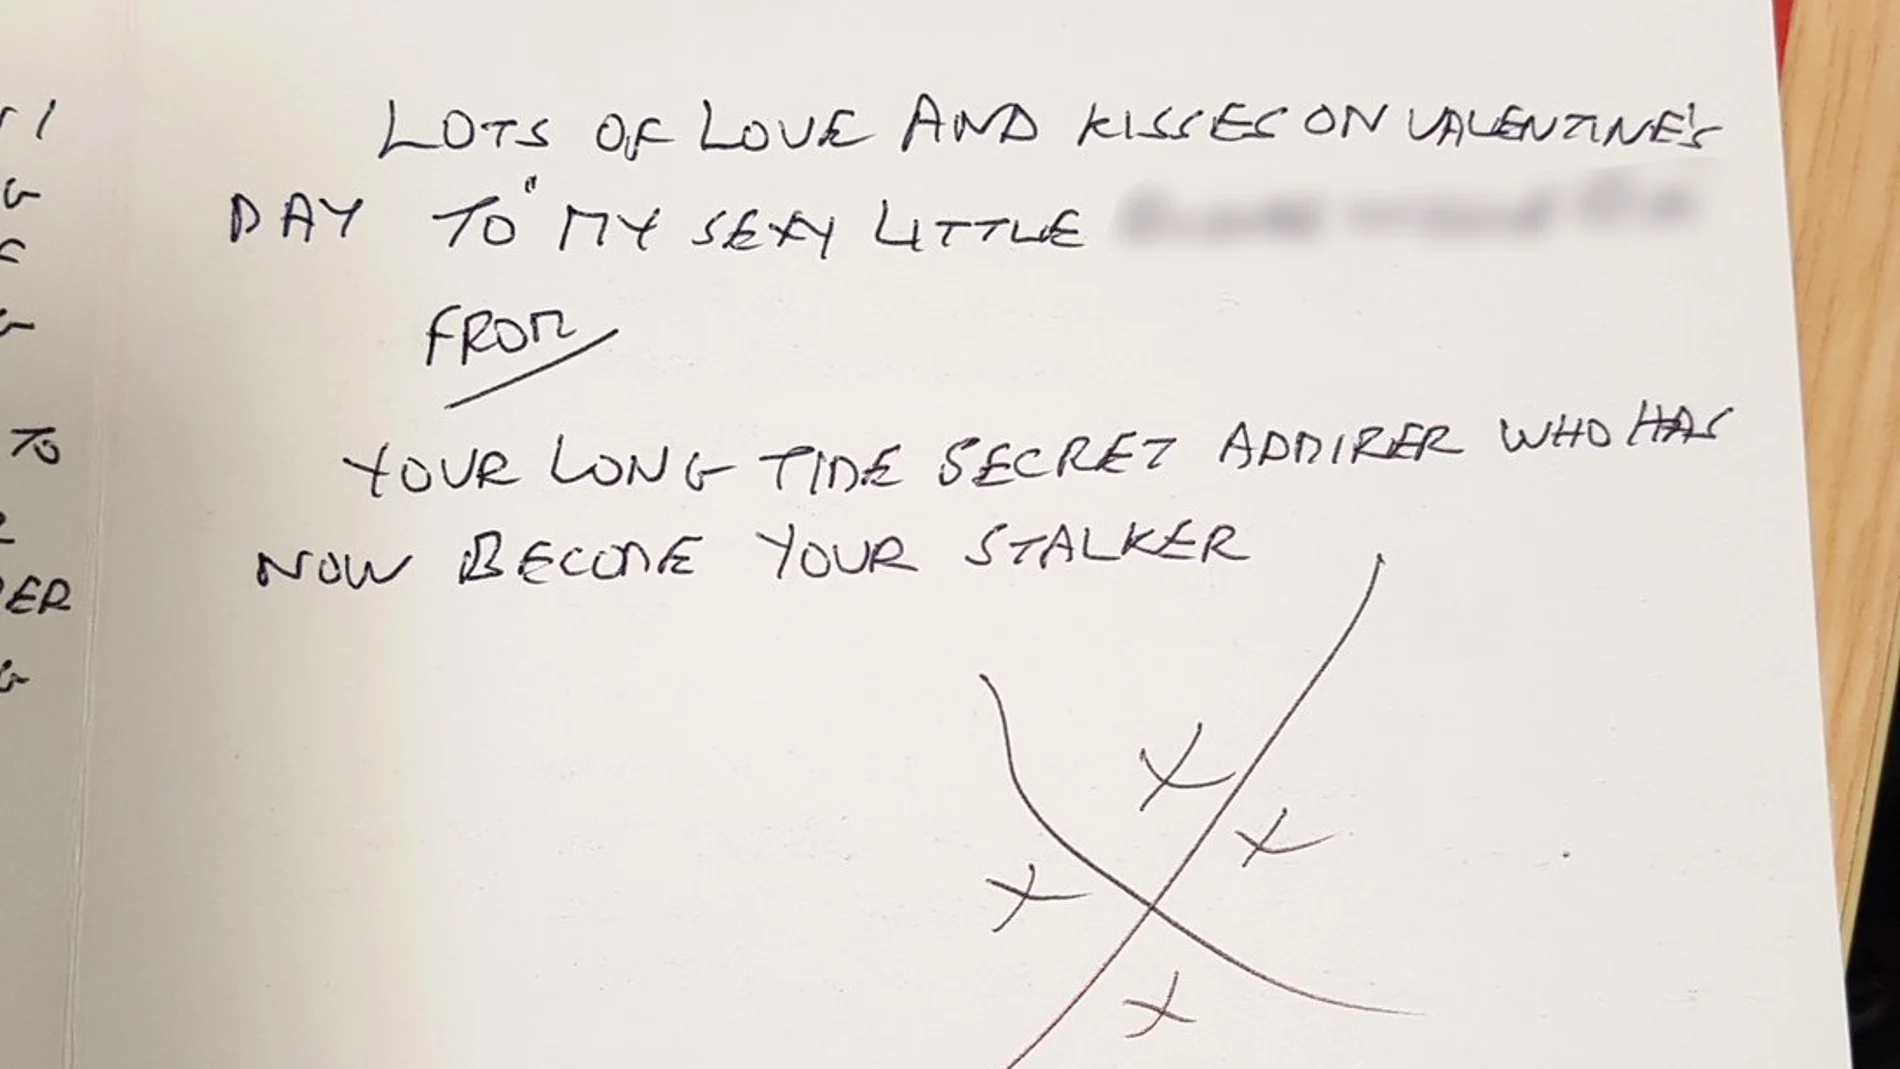 LOTS OF LOVE AND KISSES ON VALENTINE'S
DAY TO " MY SEXY LITTLE
FROM
YOUR LONG TIME SECRET ADMIRER WHO HAS
NOW BECOME YOUR STALKER
X
X
X
X
X
TO
ER